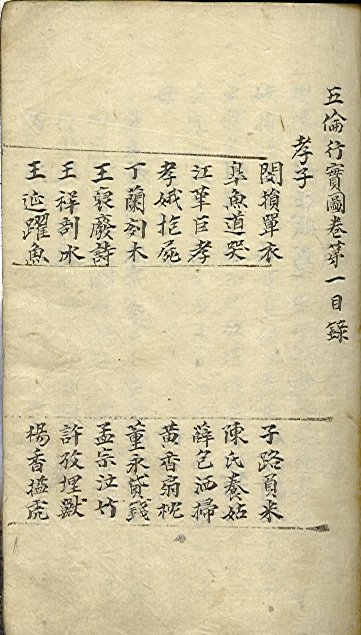 五倫行實圖卷苐一目錄
孝子
閔損單衣
子路負米
皐魚道哭
陳氏養姑
江革巨孝
薛包洒掃
孝娥抱屍
黃香扇枕
丁蘭刻木
董永貸錢
王裒廢詩
孟宗泣竹
王祥剖氷
許孜埋獸
王延躍魚
楊香搤虎